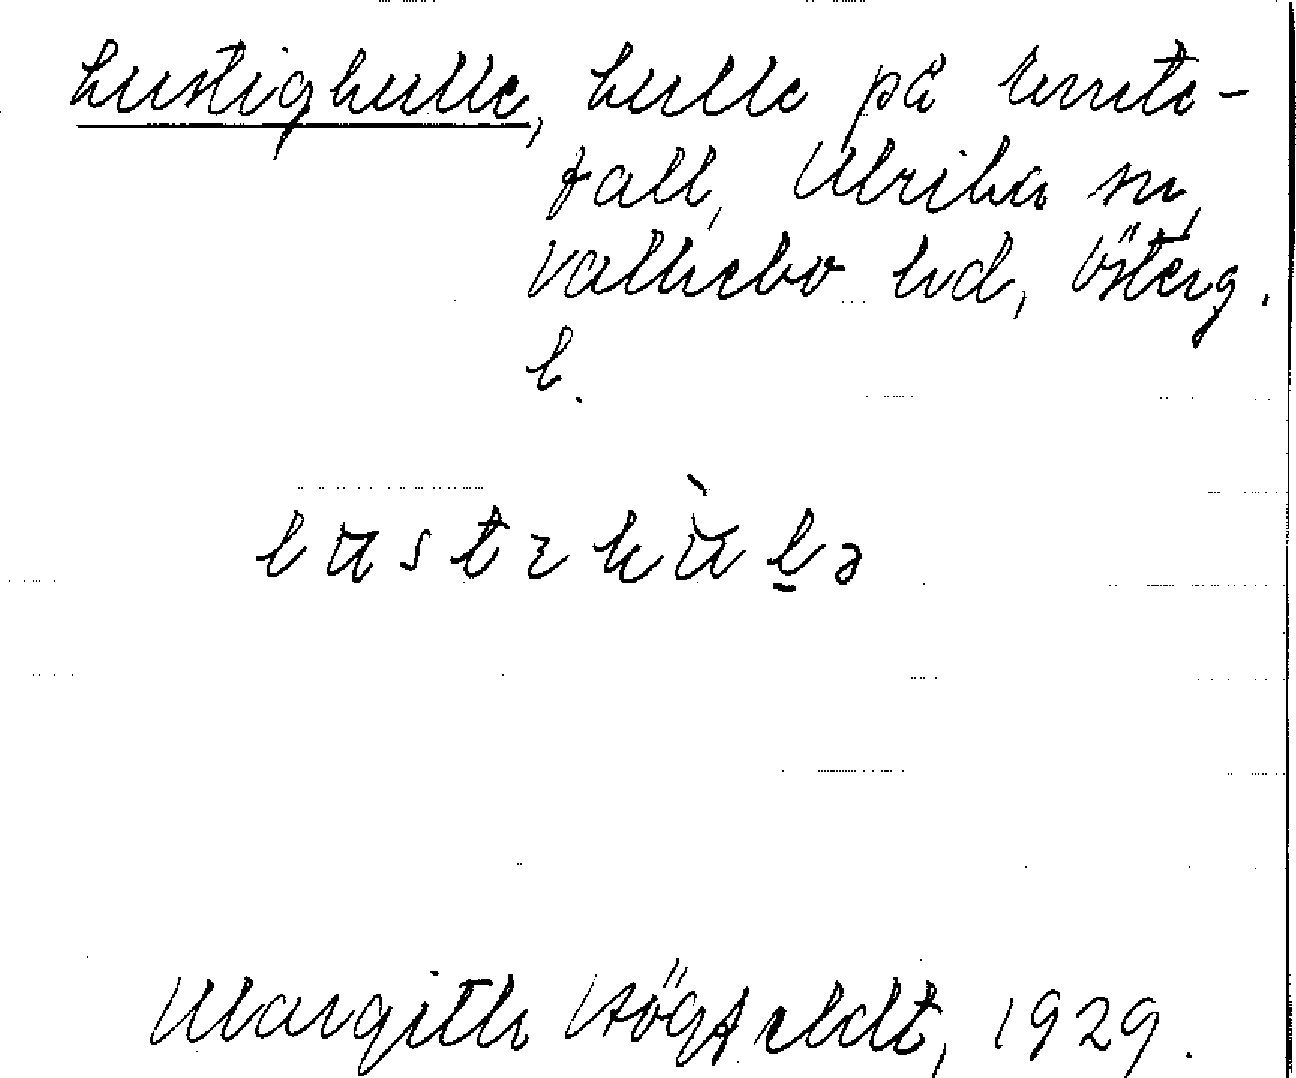 Lustigkulle, kulle på
fall, Ulrika sn,
Valkebo hd, Österg.
l.
lustɩkùl̠ə
Margith Högfeldt, 1929.